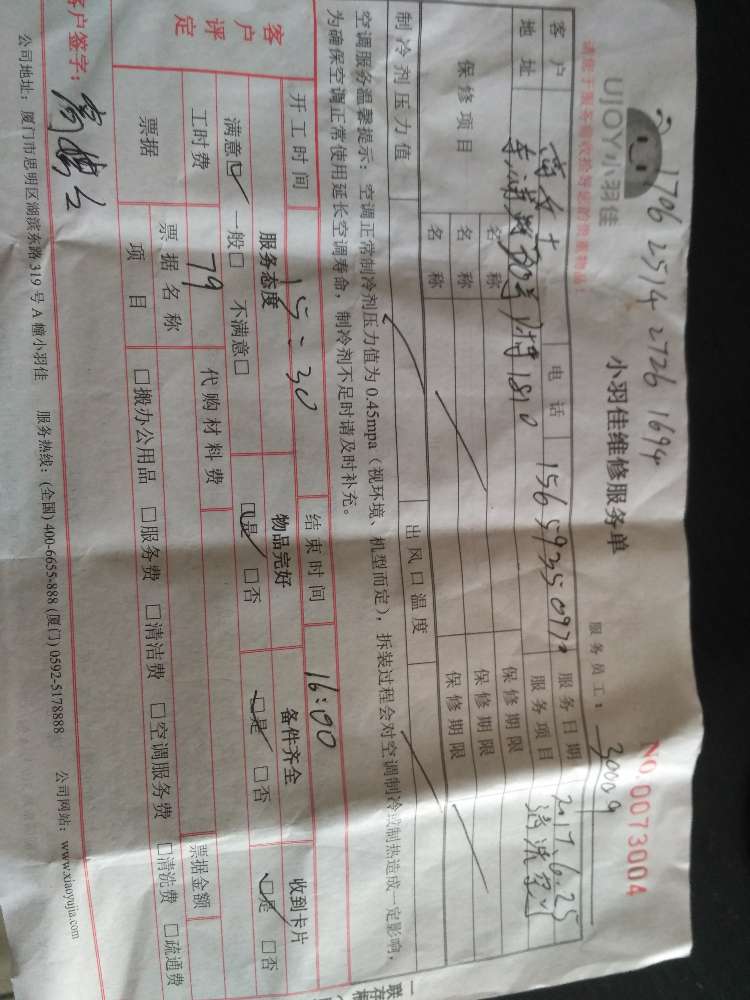 1706 2514 2726 1694
UJOY小羽佳
小羽佳维修服务单
NO.0073004
服务员工: 30009
客户 电话 服务日期 2017.6.25
地址 1810 服务项目 清洗空
保修项目 名称 保修期限
名称 保修期限
名称 保修期限
制冷剂压力值 出风口温度
空调服务温馨提示: 空调正常制冷剂压力值为 0.45mpa (视环境、机型而定), 拆装过程会对空调制冷或制热造成一定影响,
为确保空调正常使用延长空调寿命, 制冷剂不足时请及时补充。
开工时间 15:30 结束时间 16:00
客户评定 服务态度 物品完好 备件齐全 收到卡片
满意☑ 一般□ 不满意□ ☑是 □否 ☑是 □否 ☑是 □否
工时费 79 代购材料费
票据 票据名称 票据金额
项目 □搬办公用品 □服务费 □清洁费 □空调服务费 □清洗费 □疏通费
客户签字:
公司地址: 厦门市思明区湖滨东路 319 号 A 幢小羽佳 服务热线: (全国) 400-6655-888 (厦门) 0592-5178888 公司网站: www.xiaoyujia.com
一联存根